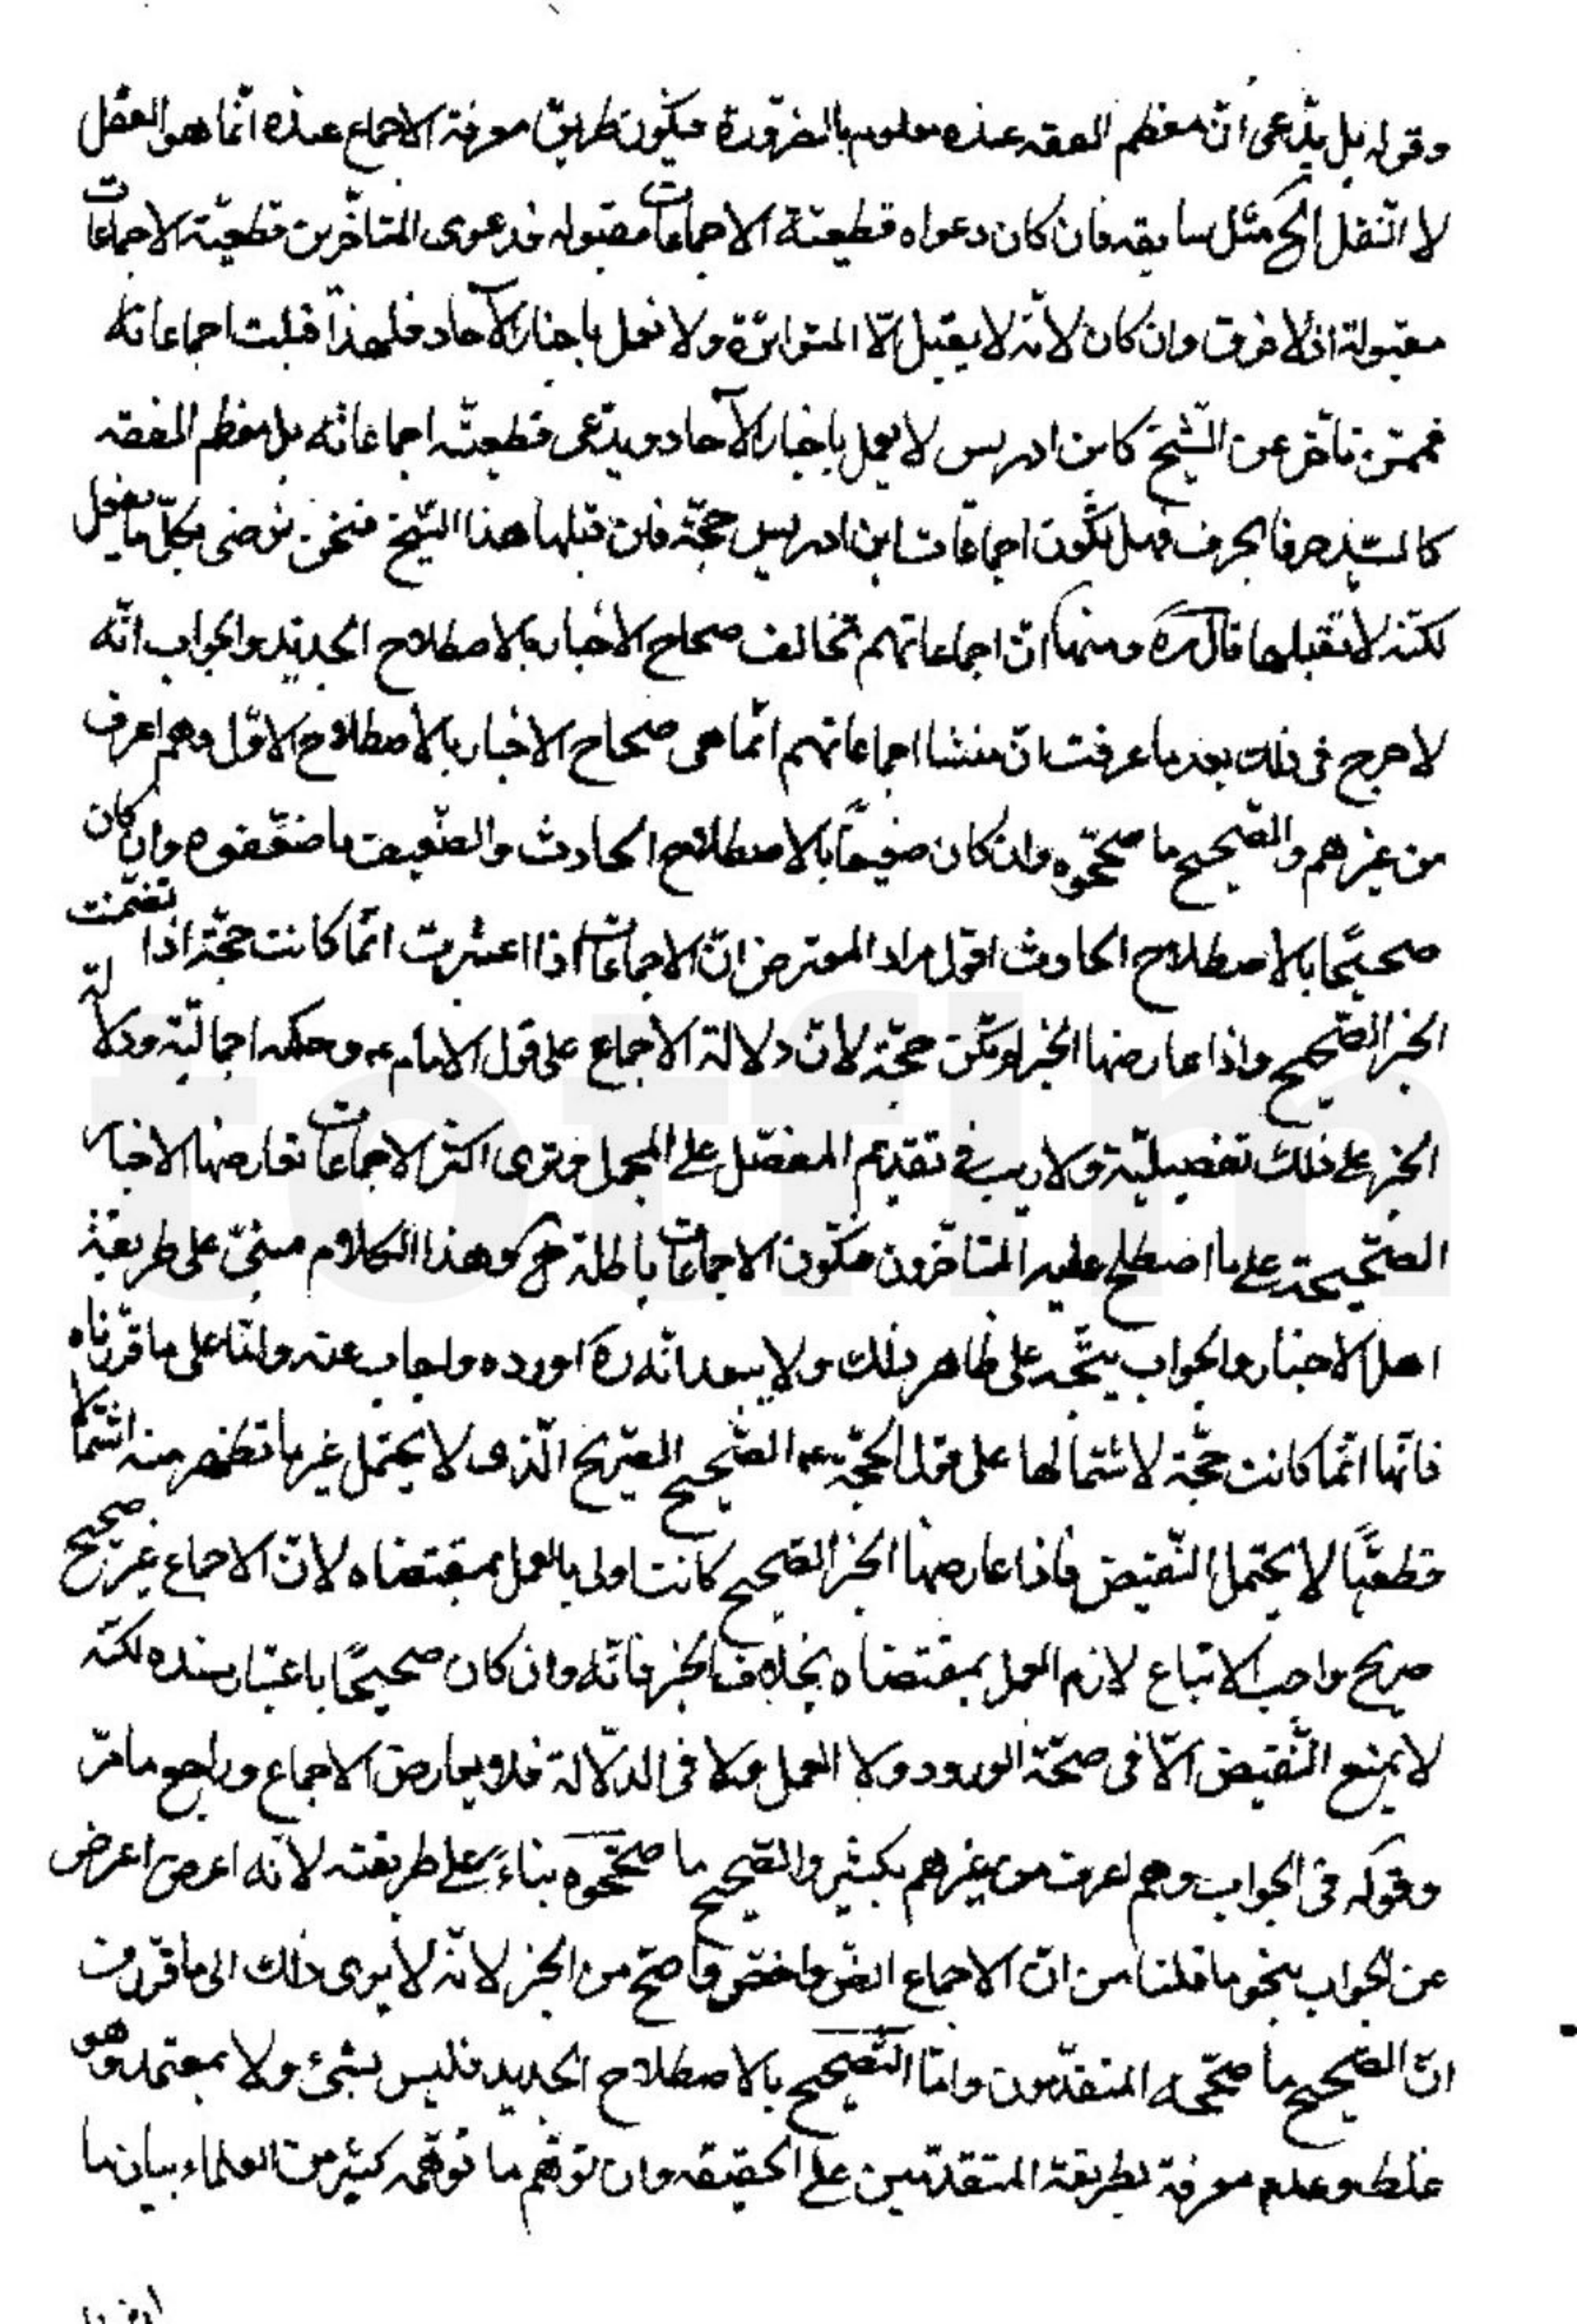 وقوله بل يدّعى انّ معظم الفقه عنده معلوم بالضّرورة فيكون طريق معرفة الاجماع عنده انّما هو العقل
لا النّقل الخ مثل سابقه فان كان دعواه قطعيّة الاجماعات مقبوله فدعوى المتأخّرين قطعيّة الاجماعات
مقبولة اذ لا فرق وان كان لأنّه لا يقبل الّا المتواترة ولا نعمل باخبار الآحاد فلهذا قبلت اجماعاته
فممّن تأخّر عن الشّيخ كابن ادريس لا يعمل باخبار الآحاد ويدّعى قطعيّة اجماعاته بل معظم الفقه
كالسّيّد حرفا بحرف فهل تكون اجماعات ابن ادريس حجّة فان قبلها هذا الشّيخ فنحن نرضى بكلّ ما يفعل
لكنّه لا يقبلها قال ره ومنها انّ اجماعاتهم تخالف صحاح الاخبار بالاصطلاح الجديد والجواب انّه
لا حرج فى ذلك بعد ما عرفت انّ منشا اجماعاتهم انّما هى صحاح الاخبار بالاصطلاح الاوّل وهم اعرف
من غيرهم والصّحيح ما صحّحوه وان كان ضعيفًا بالاصطلاح الحادث والضّعيف ما ضعّفوه وان كان
صحيحًا بالاصطلاح الحادث اقول مراد المعترض انّ الاجماعات اذا اعتبرت انّما كانت حجّة اذا تضمّنت
الخبر الصّحيح واذا عارضها الخبر لم تكن حجّة لانّ دلالة الاجماع على قول الامام ع وحكمه اجماليّة ودلالة
الخبر على ذلك تفصيليّة ولا ريب فى تقديم المفصّل على المجمل وترى اكثر الاجماعات تعارضها الاخبار
الصّحيحة على ما اصطلح عليه المتأخّرون فتكون الاجماعات باطلة ح وهذا الكلام مبنىّ على طريقة
اهل الاخبار والجواب يتّجه على ظاهر ذلك ولا يبعد انّه ره اورده واجاب عنه وامّا على ما قرّرناه
فانّها انّما كانت حجّة لاشتمالها على قول الحجّة ع الصّحيح الصّريح الّذى لا يحتمل غير ما تظهر منه اشتمالا
قطعيًّا لا يحتمل النّقيض فاذا عارضها الخبر الصّحيح كانت اولى بالعمل بمقتضاه لانّ الاجماع خبر صحيح
صريح واجب الاتباع لازم العمل بمقتضاه بخلاف الخبر فانّه وان كان صحيحًا باعتبار سنده لكنّه
لا يمنع النّقيض الّا فى صحّة الورود ولا العمل ولا فى الدّلالة فلا يعارض الاجماع وراجع ما مرّ
وقوله فى الجواب وهم اعرف من غيرهم بكثير والصّحيح ما صحّحوه بناء على طريقته لانّه اعرض اعرض
عن الجواب بنحو ما قلنا من انّ الاجماع انصّ واخصّ واصحّ من الخبر لانّه لا يرى ذلك الى ما قرّر من
انّ الصّحيح ما صحّحه المتقدّمون وامّا التّصحيح بالاصطلاح الجديد فليس بشىء ولا بمعتمد وهو
غلط وعدم معرفة بطريقة المتقدّمين على الحقيقة وان توهّم ما توهّمه كثير من العلماء بيان ما